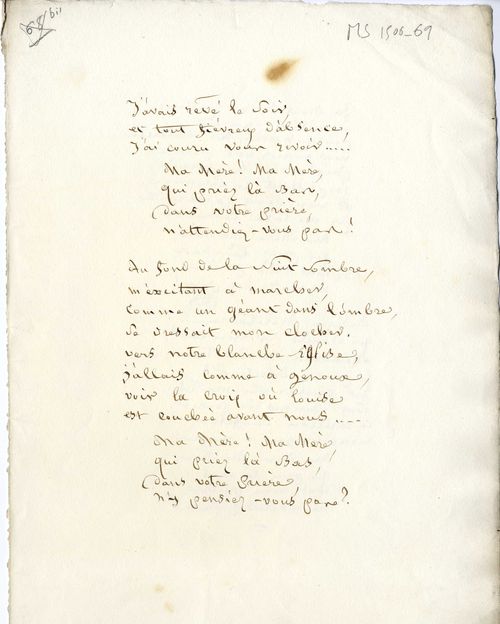 68 bis
MS 1506-69
J'avais rêvé le soir,
et tout fiévreux d'absence,
J'ai couru vous revoir.....
Ma Mère! Ma Mère,
qui priez là Bas,
dans votre prière,
n'attendiez-vous pas!
Au fond de la Nuit Sombre,
m'éxcitant à marcher,
comme un géant dans l'ombre,
Se dressait mon clocher.
vers notre blanche Eglise,
j'allais comme à genoux,
voir la croix où Louise
est couchée avant nous....
Ma Mère! Ma Mère,
qui priez là Bas,
dans votre prière,
n'y pensiez-vous pas?